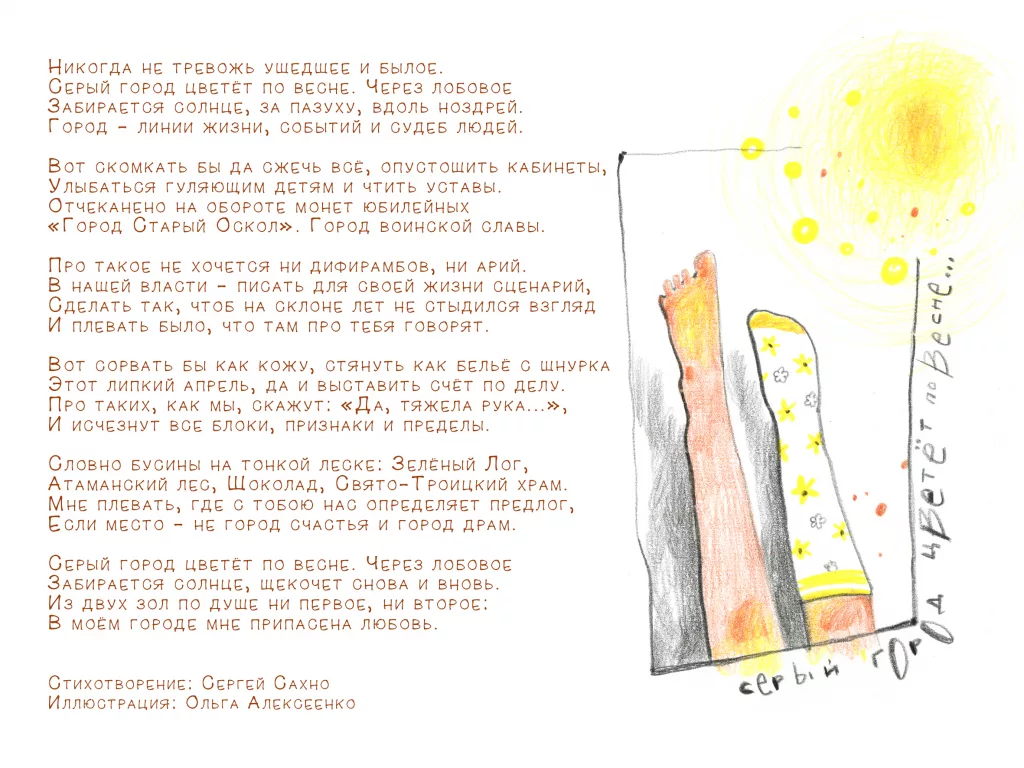 Никогда не тревожь ушедшее и былое.
Серый город цветёт по весне. Через лобовое
Забирается солнце, за пазуху, вдоль ноздрей.
Город – линии жизни, событий и судеб людей.

Вот скомкать бы да сжечь всё, опустошить кабинеты,
Улыбаться гуляющим детям и чтить уставы.
Отчеканено на обороте монет юбилейных
«Город Старый Оскол». Город воинской славы.

Про такое не хочется ни дифирамбов, ни арий.
В нашей власти – писать для своей жизни сценарий,
Сделать так, чтоб на склоне лет не стыдился взгляд
И плевать было, что там про тебя говорят.

Вот сорвать бы как кожу, стянуть как бельё с шнурка
Этот липкий апрель, да и выставить счёт по делу.
Про таких, как мы, скажут: «Да, тяжела рука...»,
И исчезнут все блоки, признаки и пределы.

Словно бусины на тонкой леске: Зелёный Лог,
Атаманский лес, Шоколад, Свято-Троицкий храм.
Мне плевать, где с тобою нас определяет предлог,
Если место – не город счастья и город драм.

Серый город цветёт по весне. Через лобовое
Забирается солнце, щекочет снова и вновь.
Из двух зол по душе ни первое, ни второе:
В моём городе мне припасена любовь.

Стихотворение: Сергей Сахно
Иллюстрация: Ольга Алексеенко
серый город цветёт по весне...